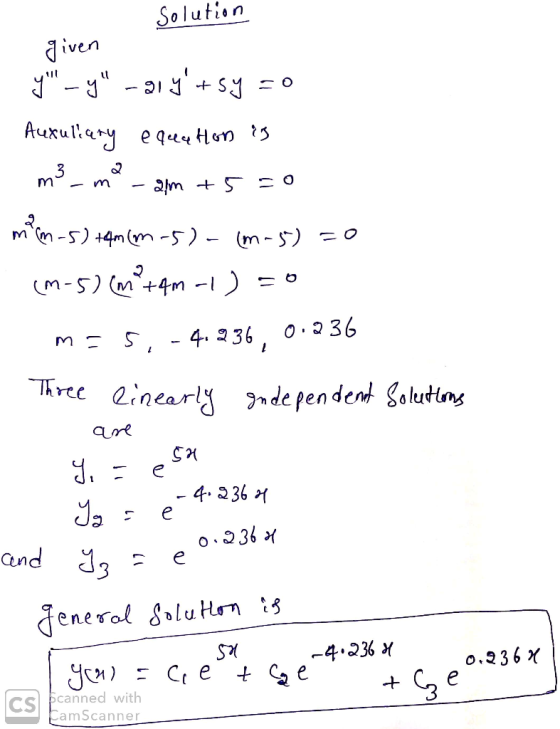 Solution
given
y''' - y'' - 21y' + 5y = 0
Auxuliary equation is
m³ - m² - 21m + 5 = 0
m²(m-5) + 4m(m-5) - (m-5) = 0
(m-5) (m²+4m-1) = 0
m = 5, -4.236, 0.236
Three linearly independent Solutions
are
y₁ = e^{5x}
y₂ = e^{-4.236x}
and y₃ = e^{0.236x}
general solution is
y(x) = C₁e^{5x} + C₂e^{-4.236x} + C₃e^{0.236x}
CS Scanned with
CamScanner